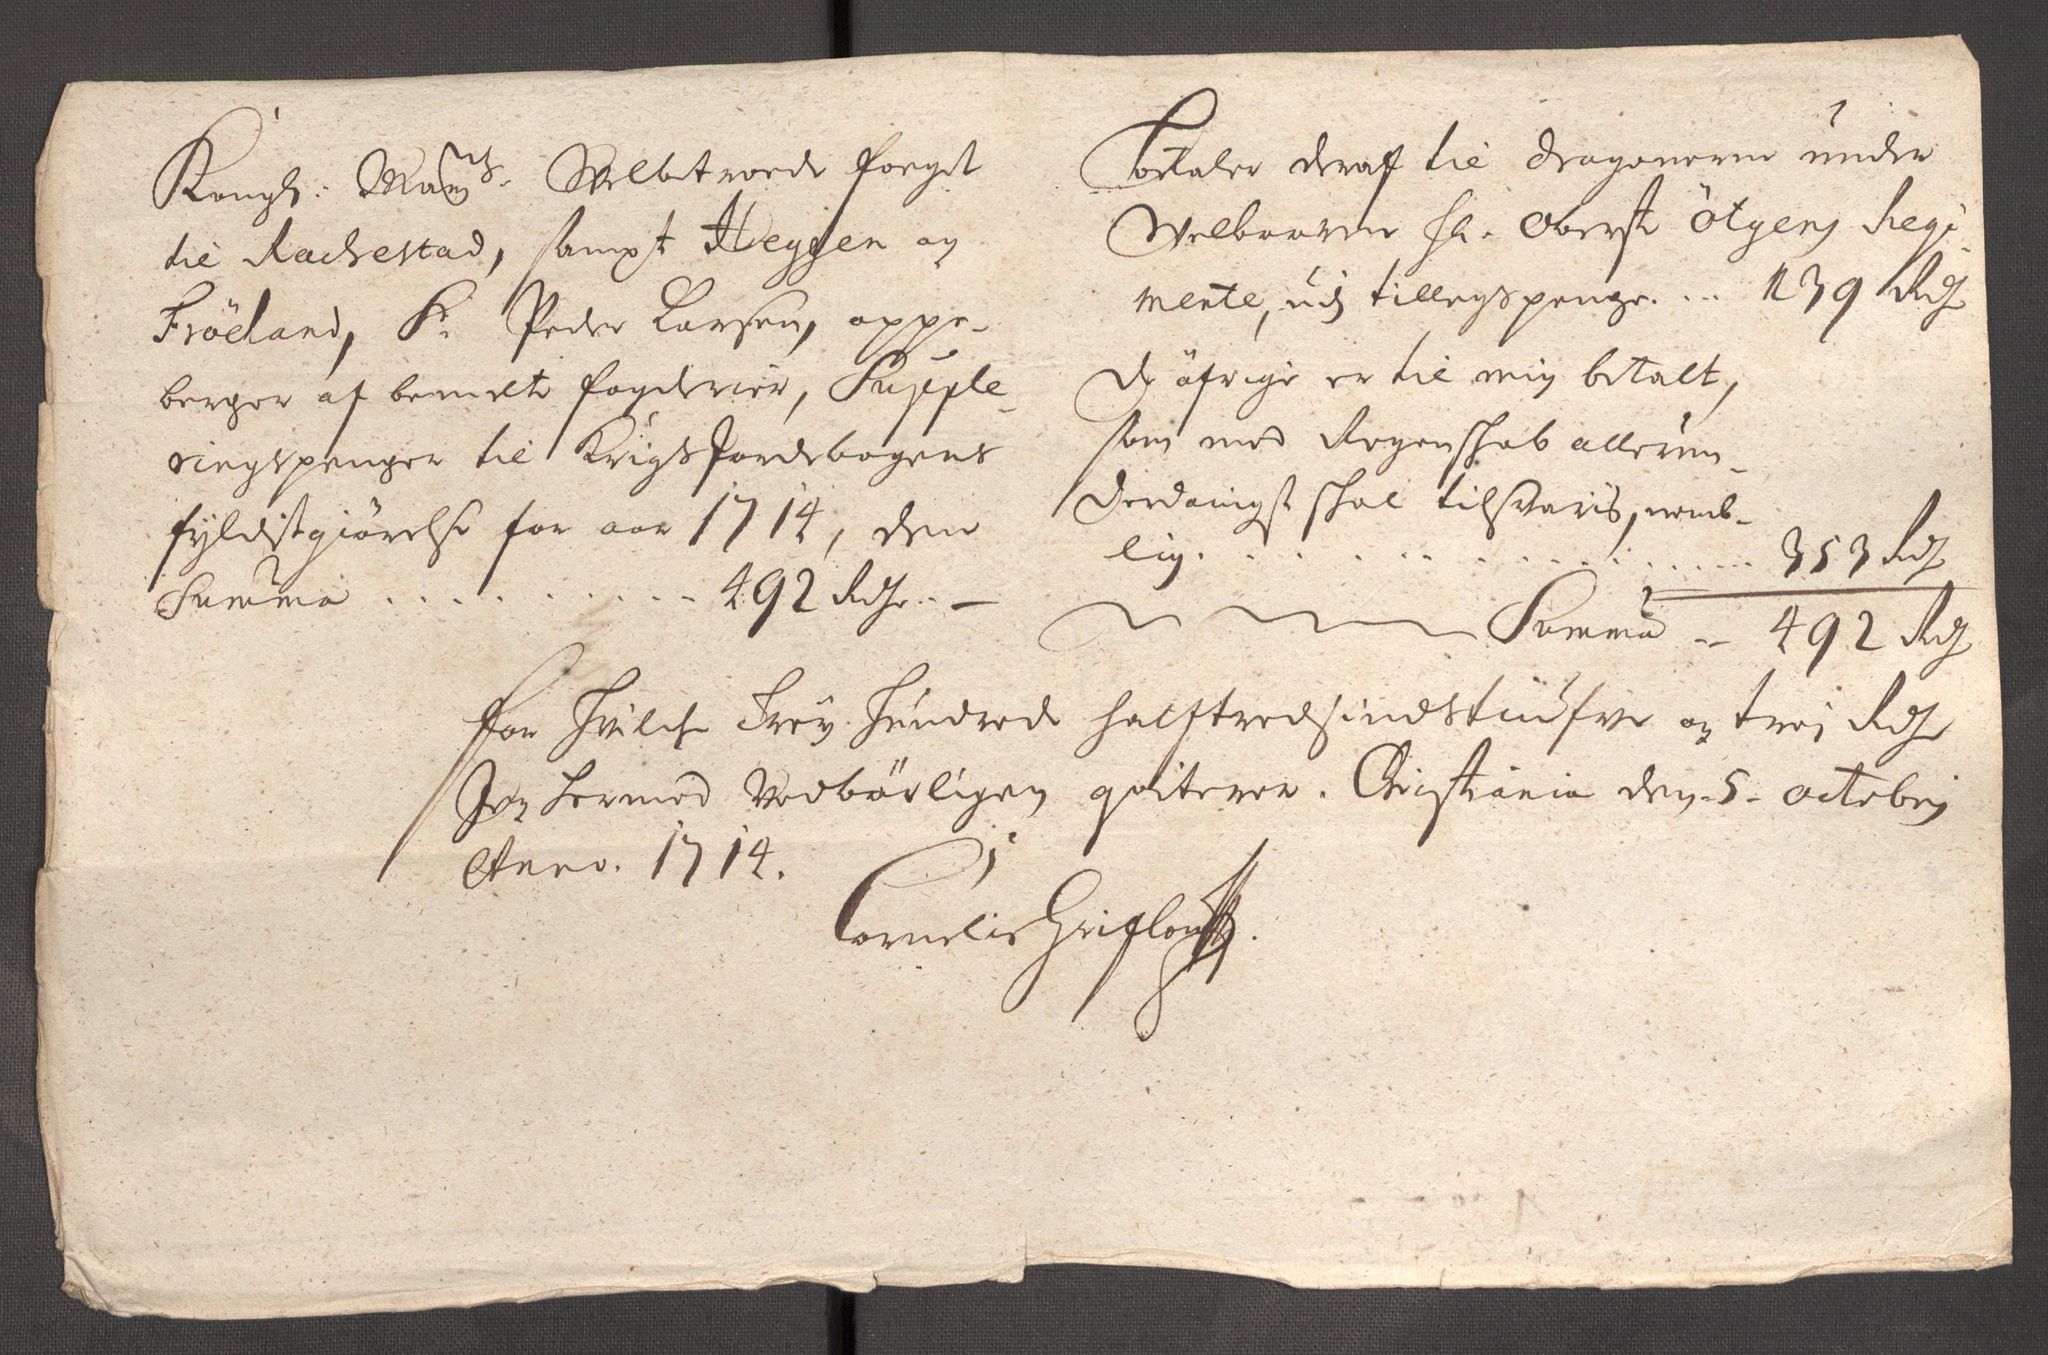 Kongl: Mayts. Velbetroede foeget
til Rachestad, sampt Heggen og
Fröeland, Sr. Peder Larsen, oppe-
berger af bemelte fogderier, Supple-
ringspenger til Krigs Jordebogens
fyldistgiörelse for aar 1714, den
Summa . . . . . . . . . . 492 Rdr. . —
betaler deraf til dragonerne under
Velbaarne Hr. Oberst Ötgens Regi-
mente, udj tillegspenge. ... 139 Rdr
De öfrige er til mig betalt,
som med Regenschab allerun-
derdanigst schal tilsvaris, nemb-
lig. . . . . . . . . . . . 353 Rdr
Summa .. 492 Rdr
for hvilche trey hundrede halftredsindstiufve og trej Rdr
Jeg hermed vedbörligen qviterer. Christiania den. 5. octobrj
Anno. 1714.
Cornelis